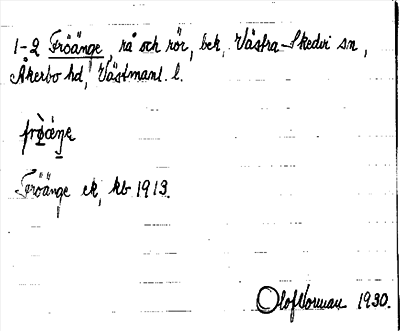 1-2 Fröänge, rå och rör, bek, Västra-Skedvi sn,
Åkerbo hd, Västmanl. l.
Fröänge ek, kb 1913.
Olof Norman 1930.